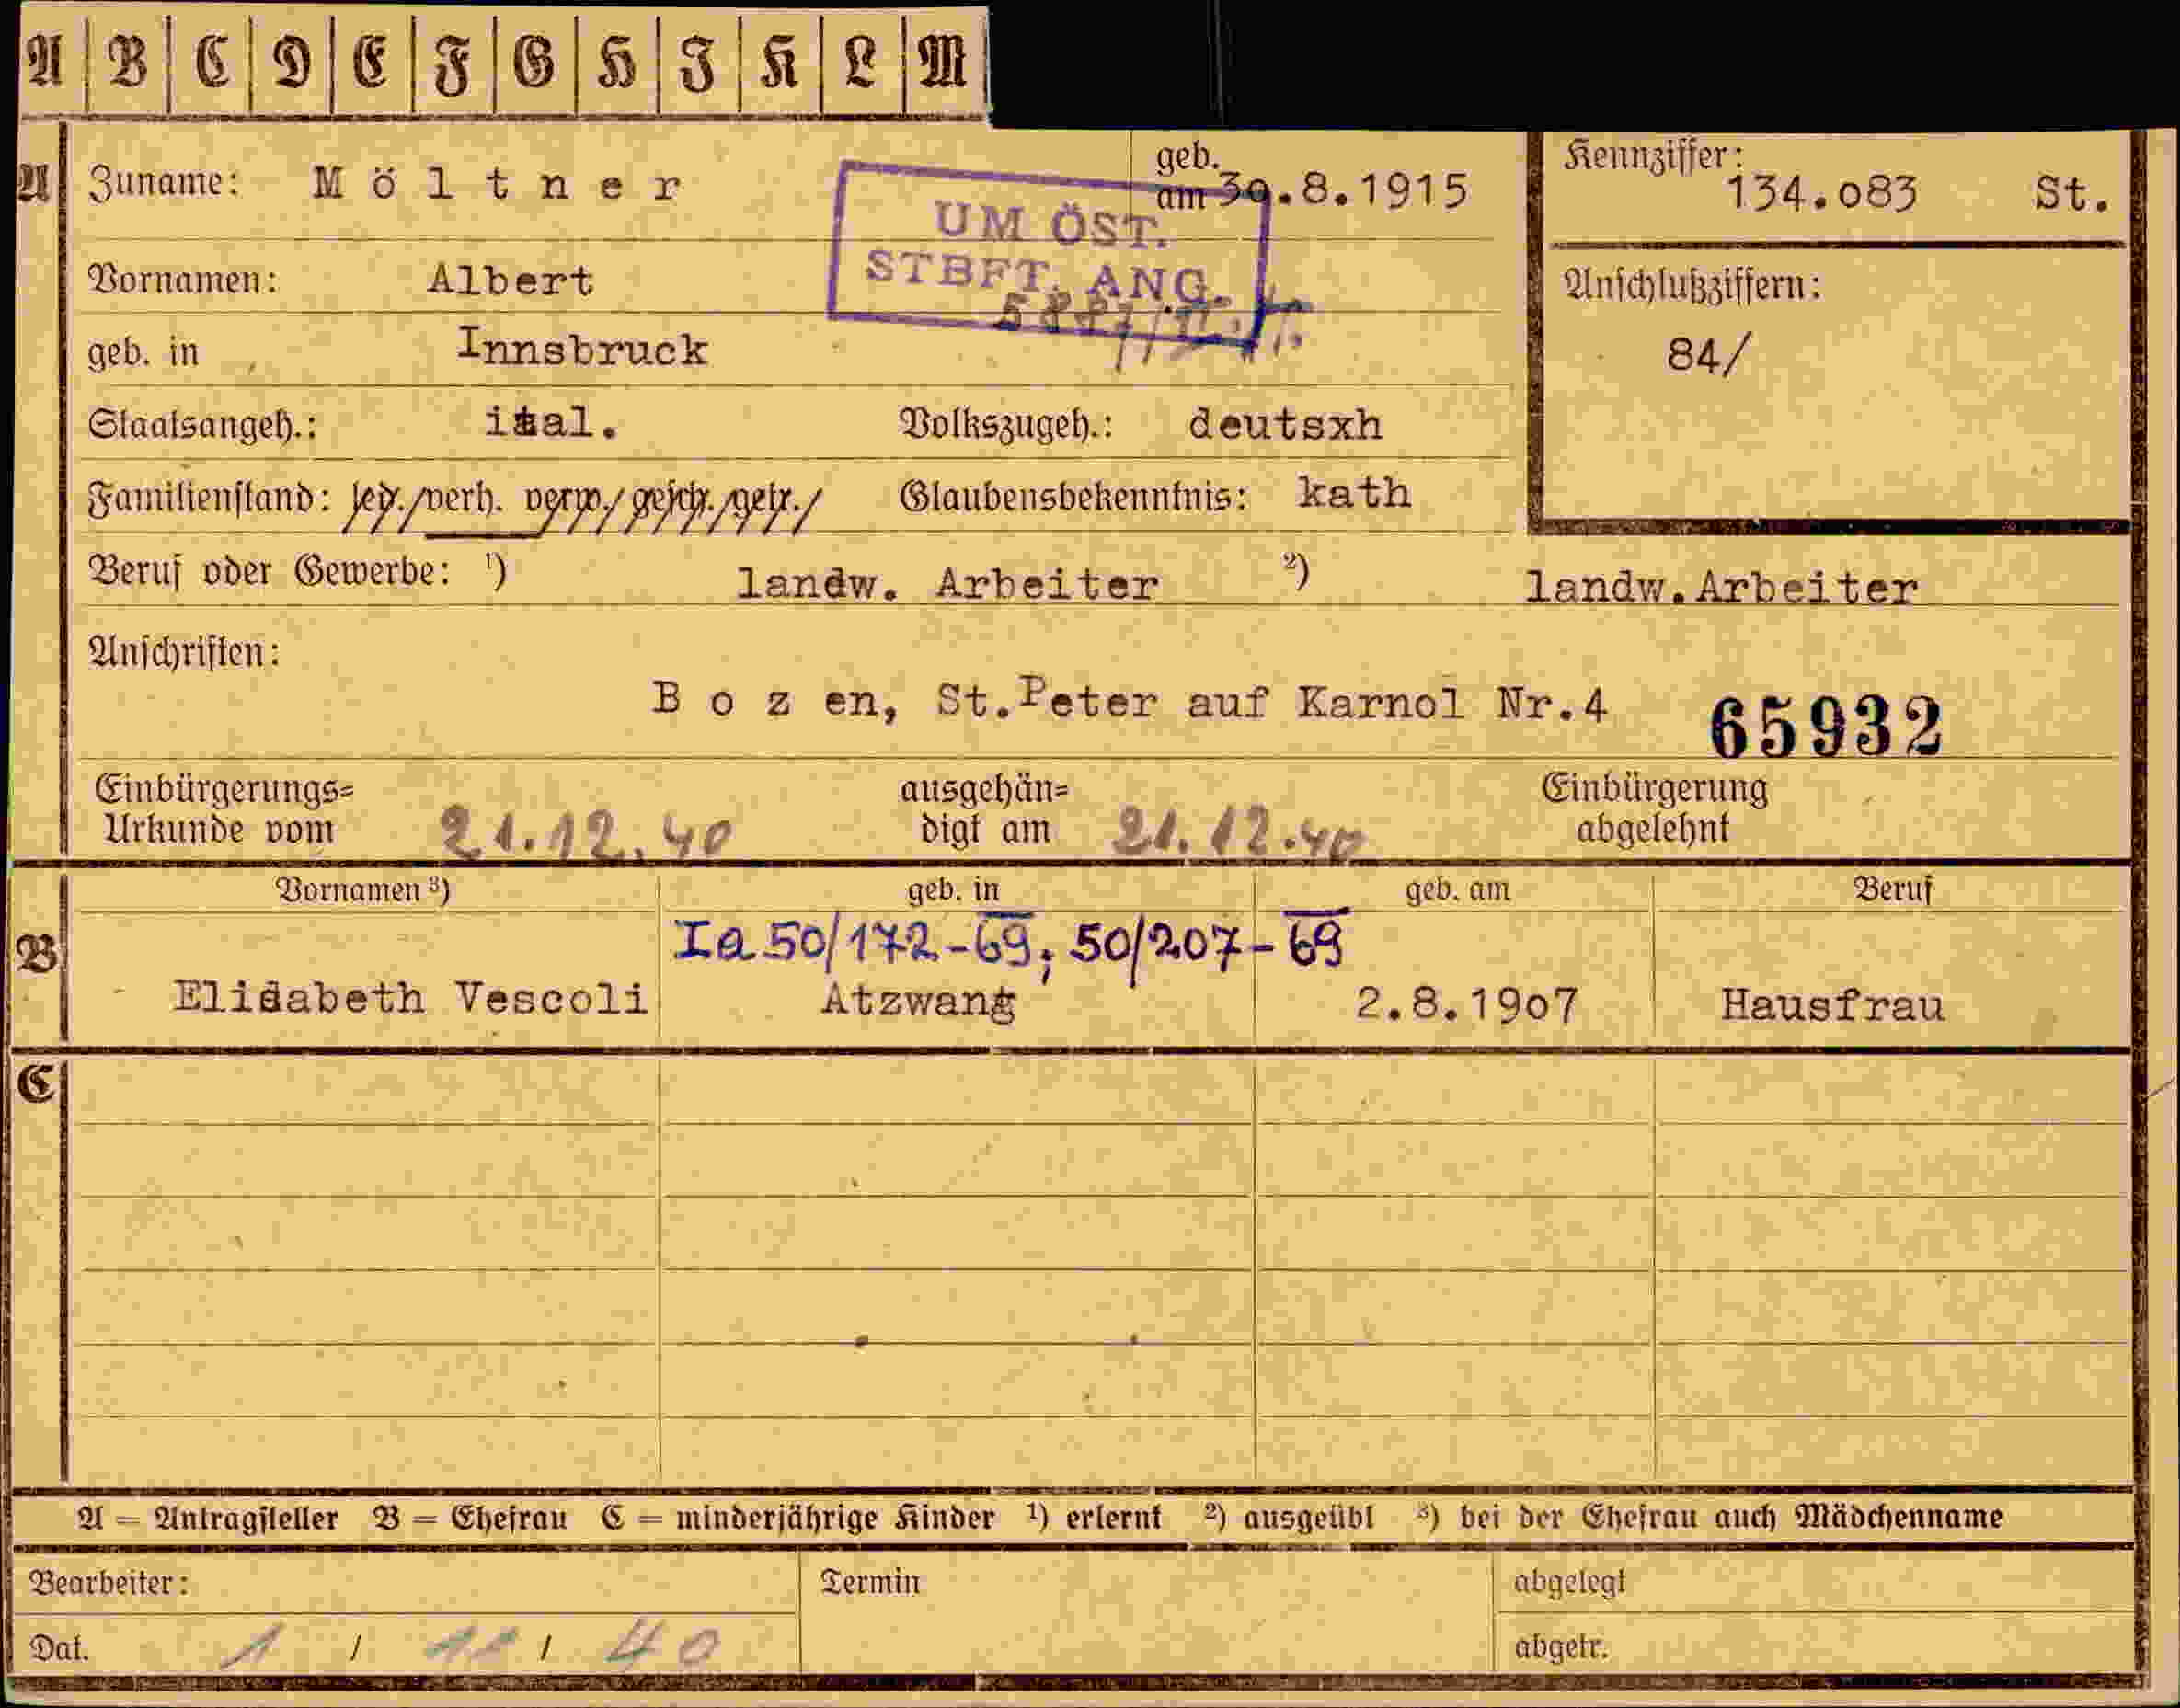 A B C D E F G H I K L M
A Zuname: Möltner geb. am 30.8.1915 Kennziffer: 134.083 St.
UM ÖST.
STBFT. ANG.
Vornamen: Albert Anschlußziffern:
geb. in Innsbruck 84/
Staatsangeh.: ital. Volkszugeh.: deutsxh
Familienstand: led./verh. verw./gesch./getr./ Glaubensbekenntnis: kath
Beruf oder Gewerbe: ¹) landw. Arbeiter ²) landw.Arbeiter
Anschriften:
Bozen, St.Peter auf Karnol Nr.4 65932
Einbürgerungs= ausgehän= Einbürgerung
Urkunde vom 21.12.40 digt am 21.12.40 abgelehnt
Vornamen ³) geb. in geb. am Beruf
B Ia 50/172-69; 50/207-69
Elisabeth Vescoli Atzwang 2.8.1907 Hausfrau
C
A = Antragsteller B = Ehefrau C = minderjährige Kinder ¹) erlernt ²) ausgeübt ³) bei der Ehefrau auch Mädchenname
Bearbeiter: Termin abgelegt
Dat. 1 / 11 / 40 abgetr.